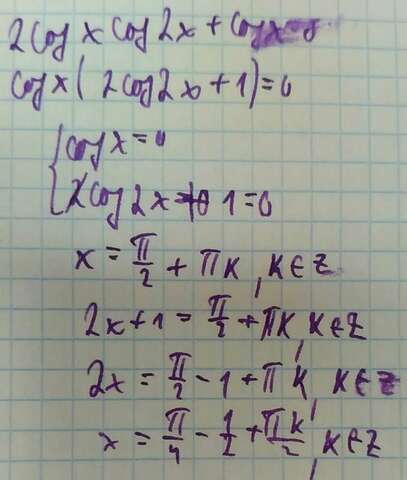 2cos x cos 2x + cos x = 0
cos x (2cos 2x + 1) = 0
{ cos x = 0
2cos 2x + 1 = 0
x = π/2 + πk, k ∈ Z
2x + 1 = π/2 + πk, k ∈ Z
2x = π/2 - 1 + πk, k ∈ Z
x = π/4 - 1/2 + πk/2, k ∈ Z